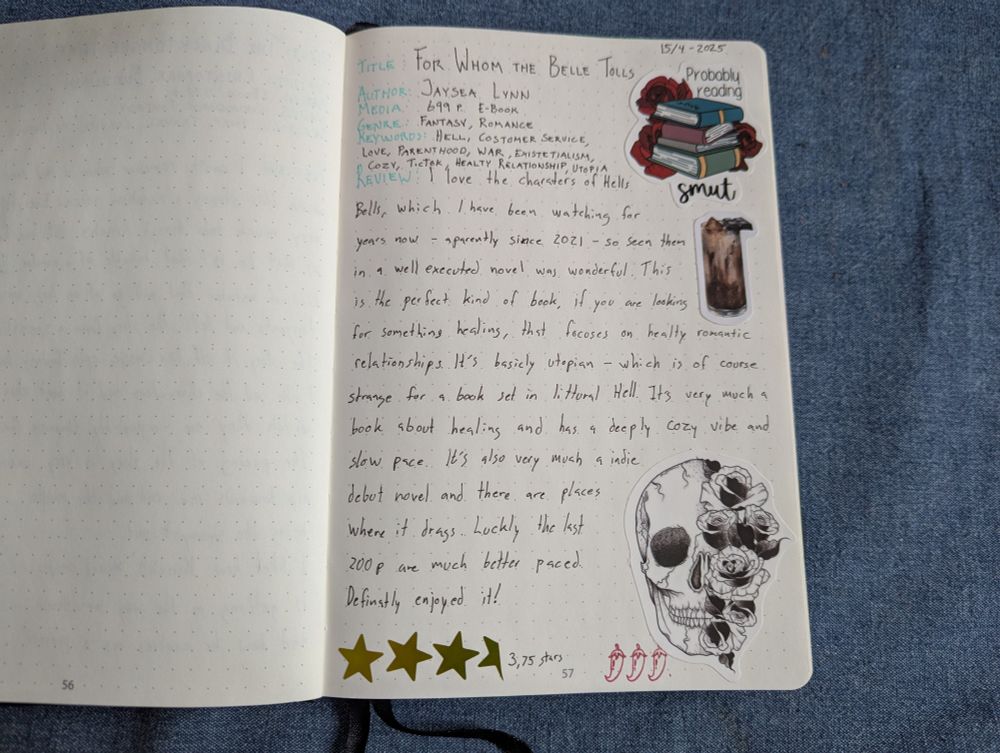 15/4-2025
TITLE: FOR WHOM THE BELLE TOLLS
AUTHOR: JAYSEA LYNN
MEDIA: 699 P. E-BOOK
GENRE: FANTASY, ROMANCE
KEYWORDS: HELL, COSTOMER SERVICE,
LOVE, PARENTHOOD, WAR, EXISTETIALISM,
COZY, TICTOK, HEALTY RELATIONSHIP, UTOPIA
REVIEW: I love the charaters of Hells
Bells, which I have been watching for
years now - aparently since 2021 - so seen them
in a well executed novel was wonderful. This
is the perfect kind of book, if you are looking
for something healing, that focoses on healty romantic
relationships. It's basicly utopian - which is of course
strange for a book set in littural Hell. It's very much a
book about healing and has a deeply cozy vibe and
slow pace. It's also very much a indie
debut novel and there are places
where it drags. Luckly the last
200 p are much better paced.
Definatly enjoyed it!
3,75 stars
Probably
reading
smut
56
57